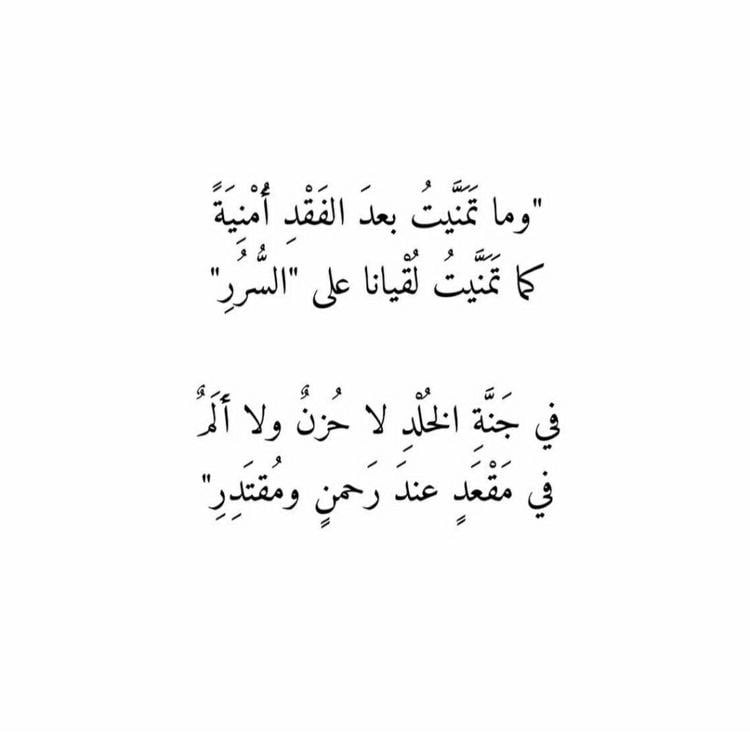 "وما تَمَنَّيتُ بعدَ الفَقْدِ أُمْنِيَةً
كما تَمَنَّيتُ لُقْيانا على "السُّرُرِ"
في جَنَّةِ الخُلْدِ لا حُزنٌ ولا ألَمٌ
في مَقْعَدٍ عندَ رَحمنٍ ومُقتَدِرِ"